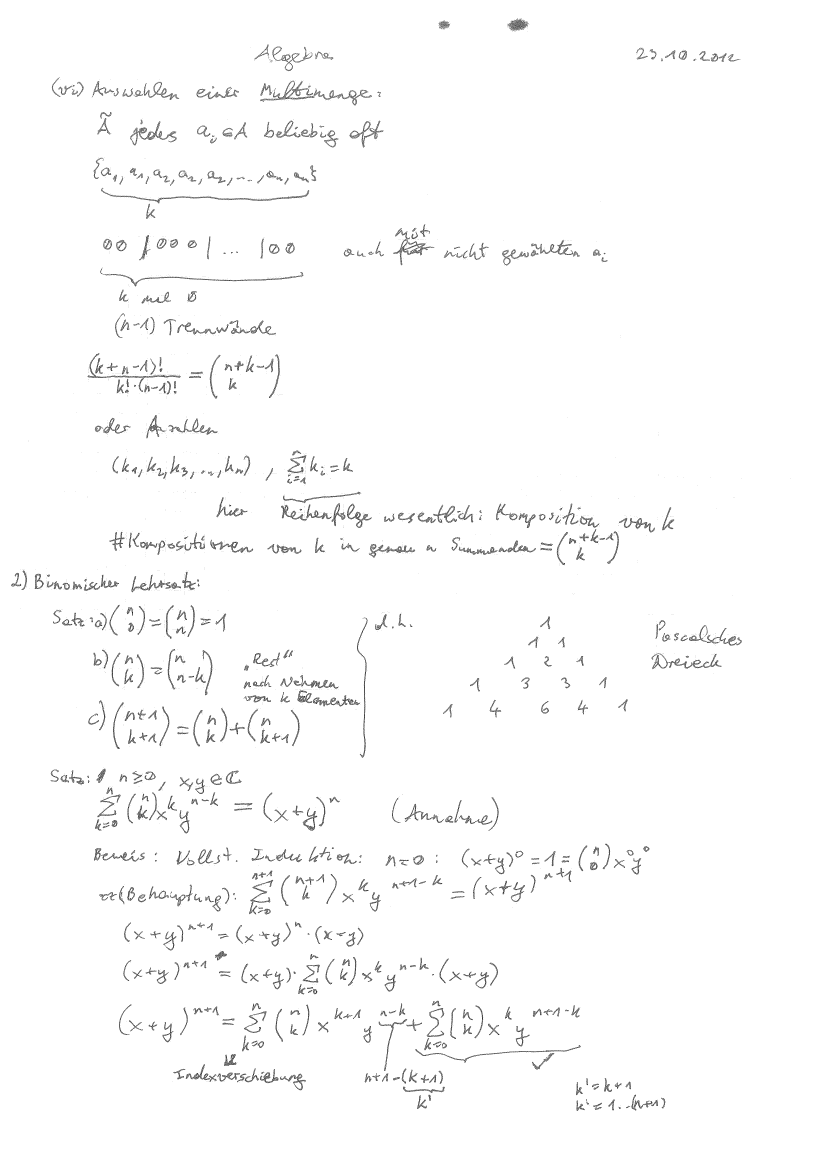 Algebra 23.10.2012
(vi) Auswahlen einer Multimenge:
Ã jedes aᵢ∈A beliebig oft
{a₁, a₁, a₂, a₂, a₂, ..., aₙ, aₙ}
k
00 | 000 | ... | 00 auch mit nicht gewählten aᵢ
k mal 0
(n-1) Trennwände
(k+n-1)! / k!·(n-1)! = (n+k-1 über k)
oder Anzahlen
(k₁, k₂, k₃, ..., kₙ) , ∑ᵢ₌₁ⁿ kᵢ = k
hier Reihenfolge wesentlich: Komposition von k
#Kompositionen von k in genau n Summanden = (n+k-1 über k)
2) Binomischer Lehrsatz:
Satz: a) (n über 0) = (n über n) = 1
b) (n über k) = (n über n-k) „Rest“
nach Nehmen
von k Elementen
c) (n+1 über k+1) = (n über k) + (n über k+1)
d.h.
1
1 1
1 2 1
1 3 3 1
1 4 6 4 1
Pascalsches
Dreieck
Satz: n≥0, x,y∈ℂ
∑ₖ₌₀ⁿ (n über k) xᵏ yⁿ⁻ᵏ = (x+y)ⁿ (Annahme)
Beweis: Vollst. Induktion: n=0: (x+y)⁰ = 1 = (n über 0) x⁰y⁰
zz(Behauptung): ∑ₖ₌₀ⁿ⁺¹ (n+1 über k) xᵏ yⁿ⁺¹⁻ᵏ = (x+y)ⁿ⁺¹
(x+y)ⁿ⁺¹ = (x+y)ⁿ · (x-y)
(x+y)ⁿ⁺¹ = (x+y) · ∑ₖ₌₀ⁿ (n über k) xᵏ yⁿ⁻ᵏ · (x+y)
(x+y)ⁿ⁺¹ = ∑ₖ₌₀ⁿ (n über k) xᵏ⁺¹ yⁿ⁻ᵏ + ∑ₖ₌₀ⁿ (n über k) xᵏ yⁿ⁺¹⁻ᵏ
Indexverschiebung n+1-(k+1) ✓
k'
k'=k+1
k'=1...(n+1)